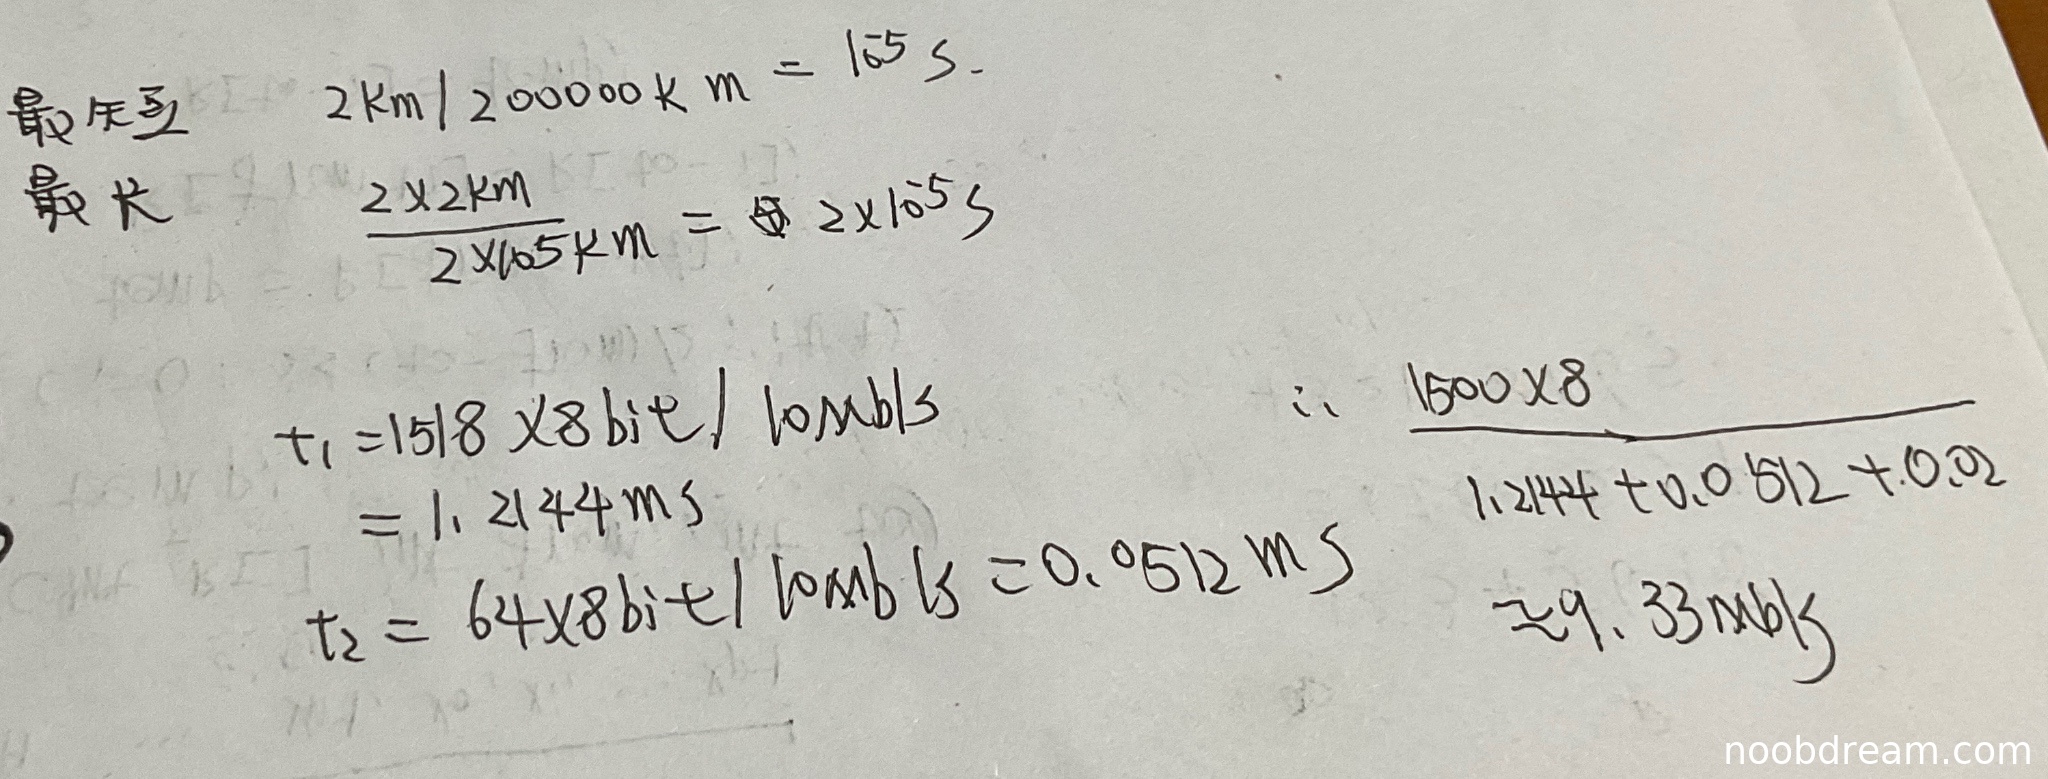 最短 2km/200000km = 10⁻⁵ s.
最长 2×2km / 2×10⁵km = 2×10⁻⁵ s
t₁ = 1518×8bit/10Mb/s
= 1.2144ms
t₂ = 64×8bit/10Mb/s = 0.0512ms
∴ 1500×8 / 1.2144+0.0512+0.02
≈9.33Mb/s
noobdream.com